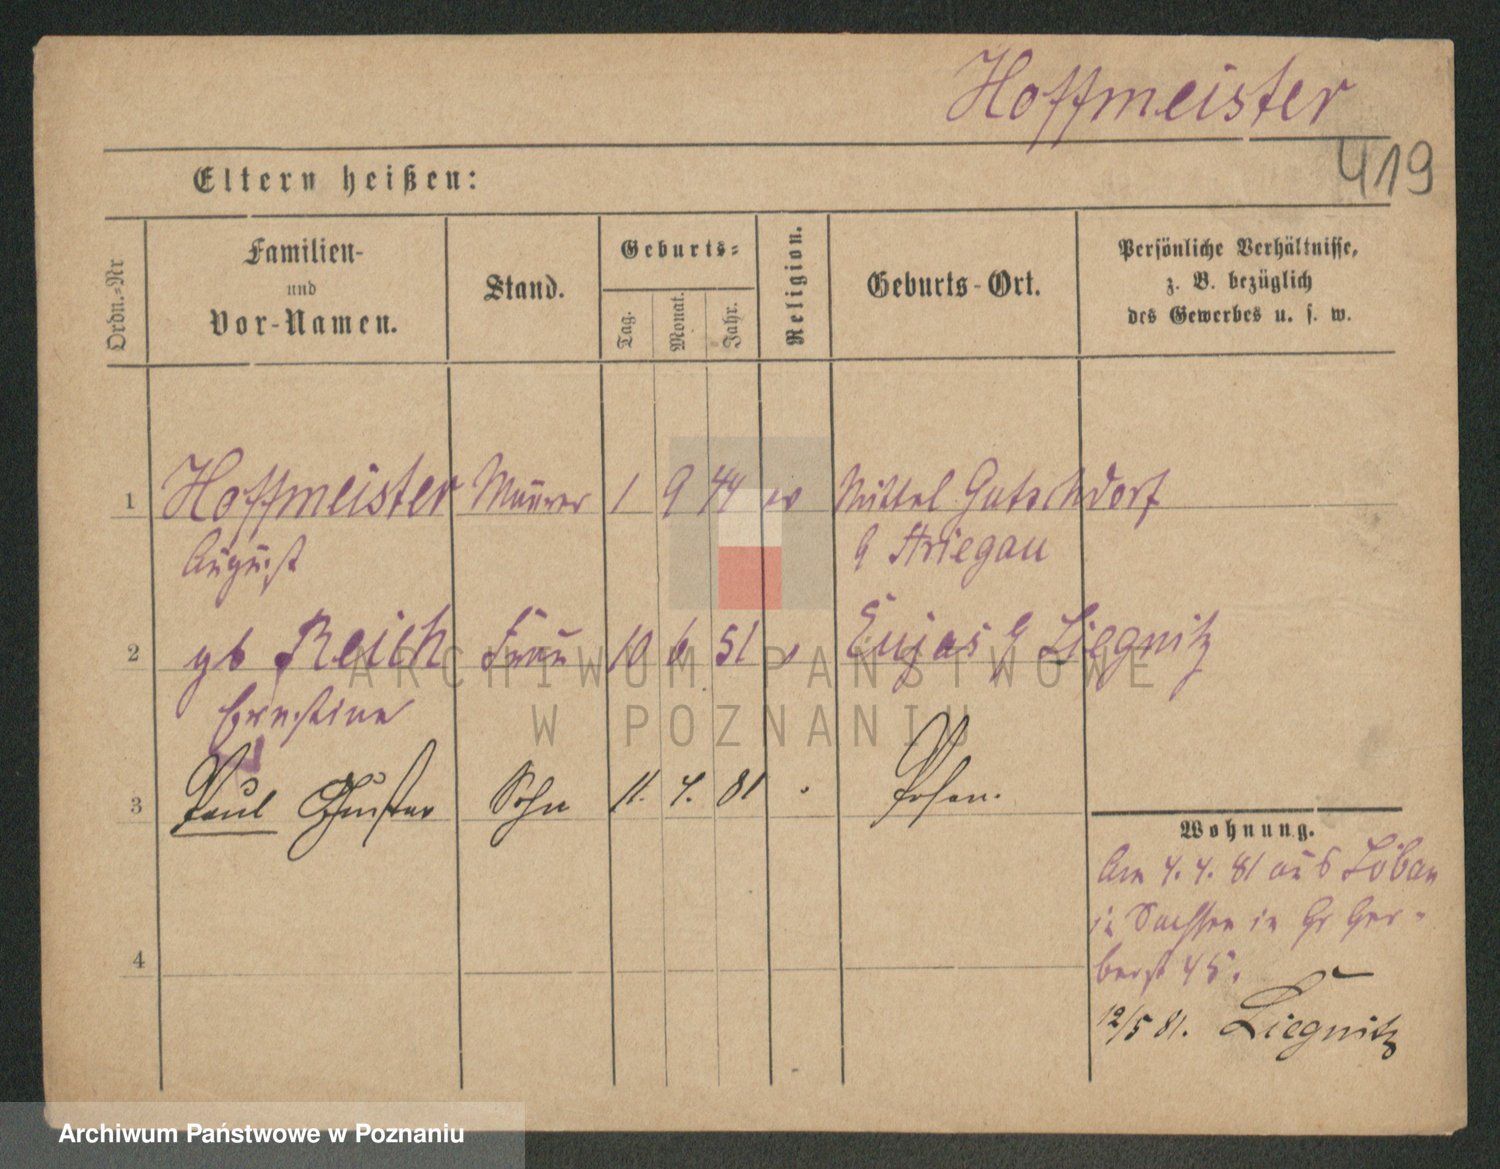 Hoffmeister
419
Eltern heißen:
Ordn.-Nr
Familien-
und
Vor-Namen.
Stand.
Geburts-
Tag.
Monat.
Jahr.
Religion.
Geburts-Ort.
Persönliche Verhältnisse,
z. B. bezüglich
des Gewerbes u. s. w.
1 Hoffmeister Maurer 1 9 44 ev Mittel Gutschdorf
August Striegau
2 gb Reich Frau 10 6 51 Liegnitz
Ernestine
3 Paul Gustav Sohn 11. 4. 81 Posen.
Wohnung.
Am 4. 4. 81 aus Löbau
in Sachsen in Gr Ger-
berst 45.
4
12/5 81. Liegnitz
ARCHIWUM PAŃSTWOWE
W POZNANIU
Archiwum Państwowe w Poznaniu